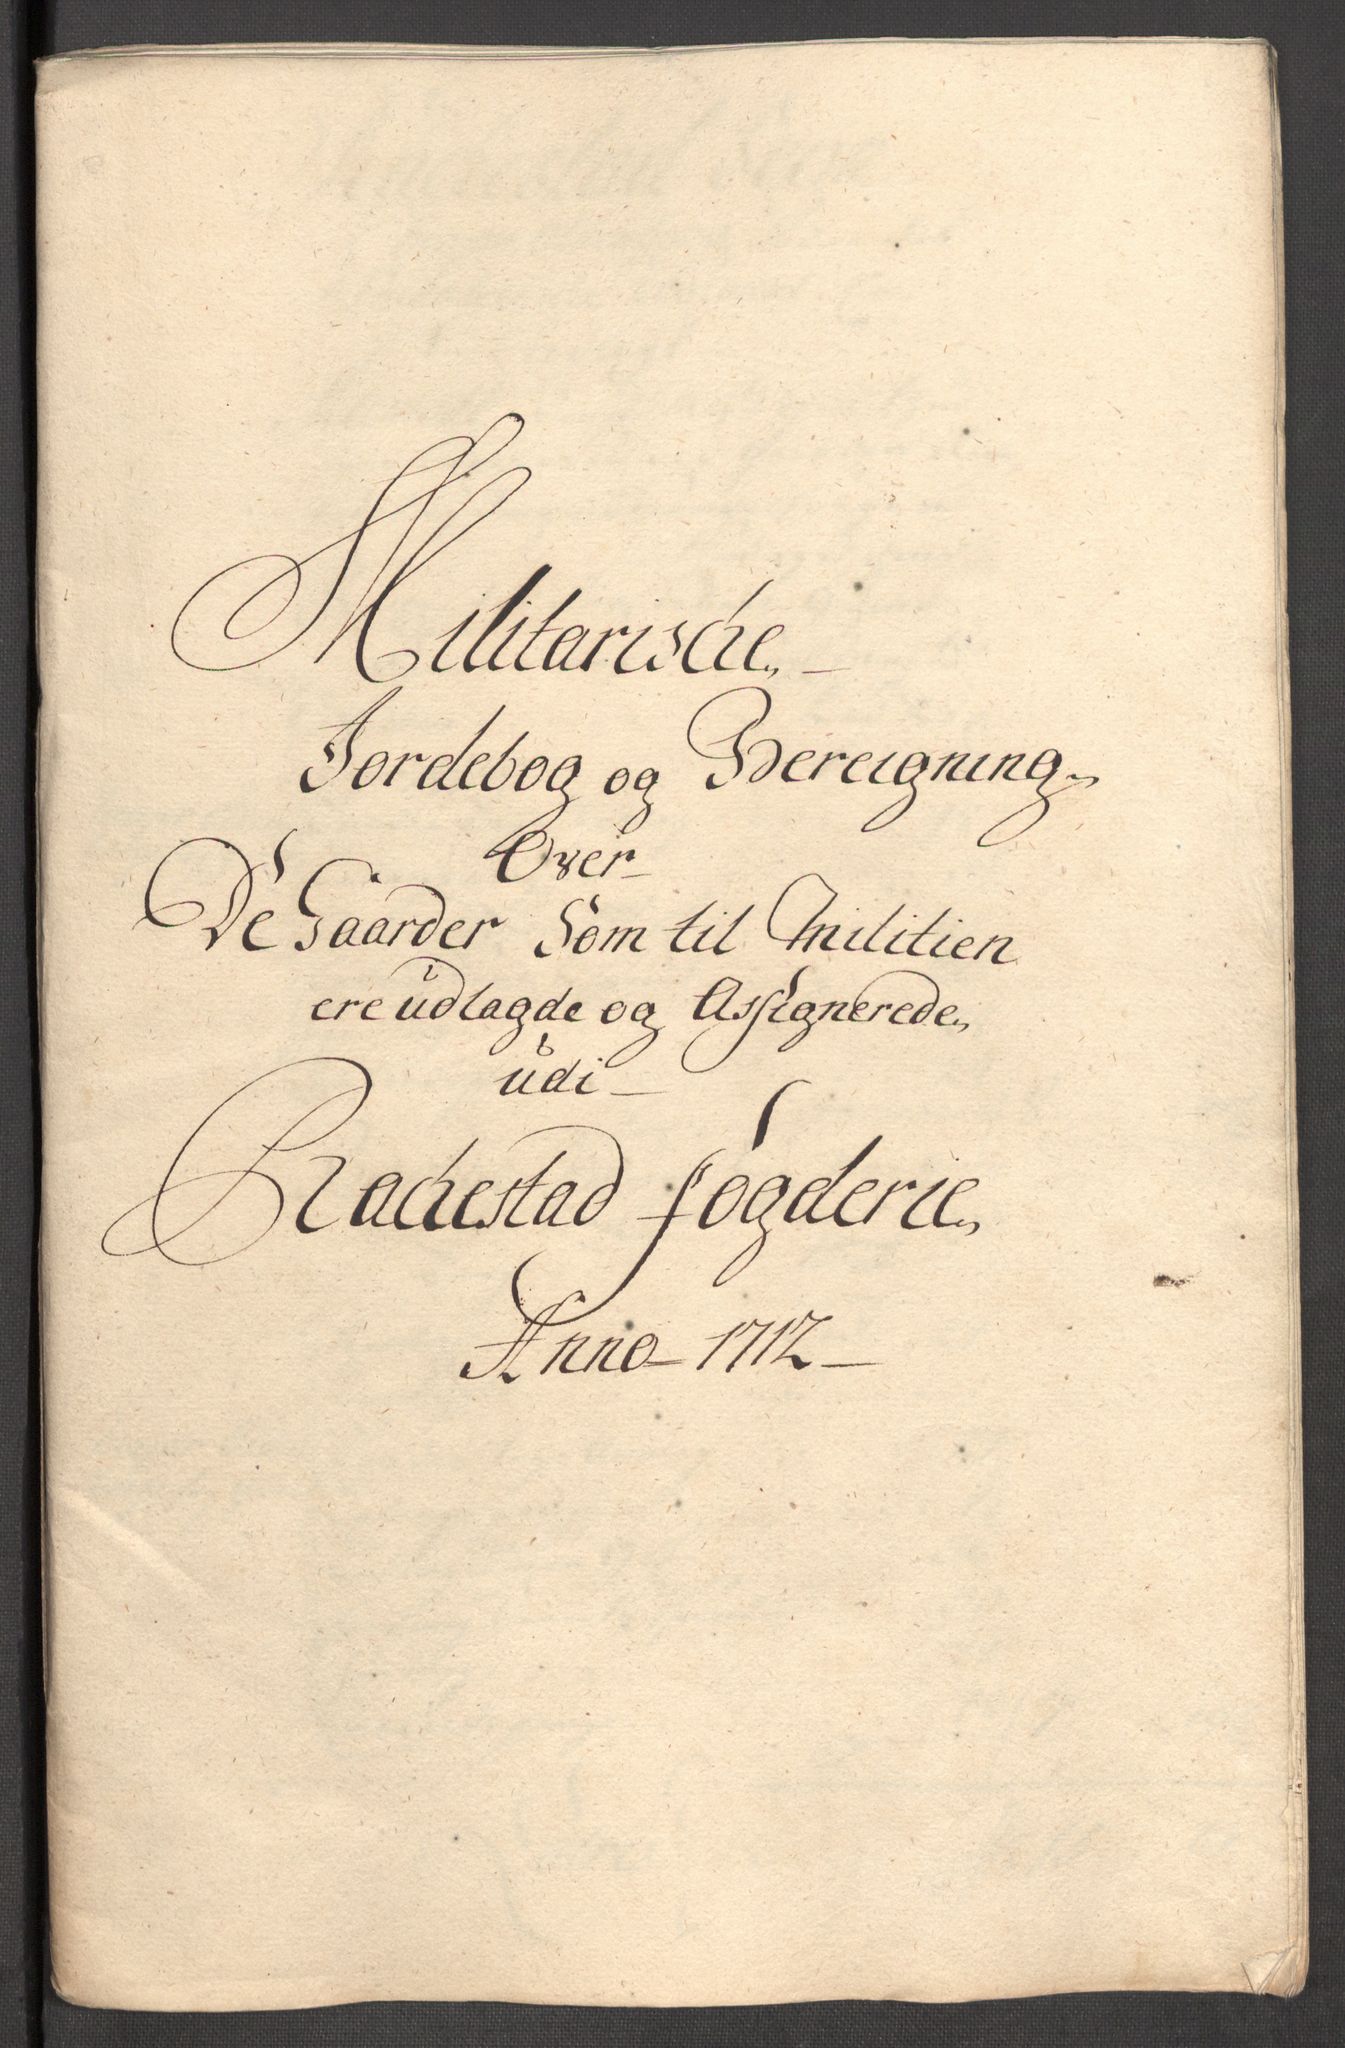 Militarische
Jordebog og Bereigning
Over
De Gaarder Som til Militien
ere udlagde og Assignerede
udi
Rachestad fogderie
Anno 1712